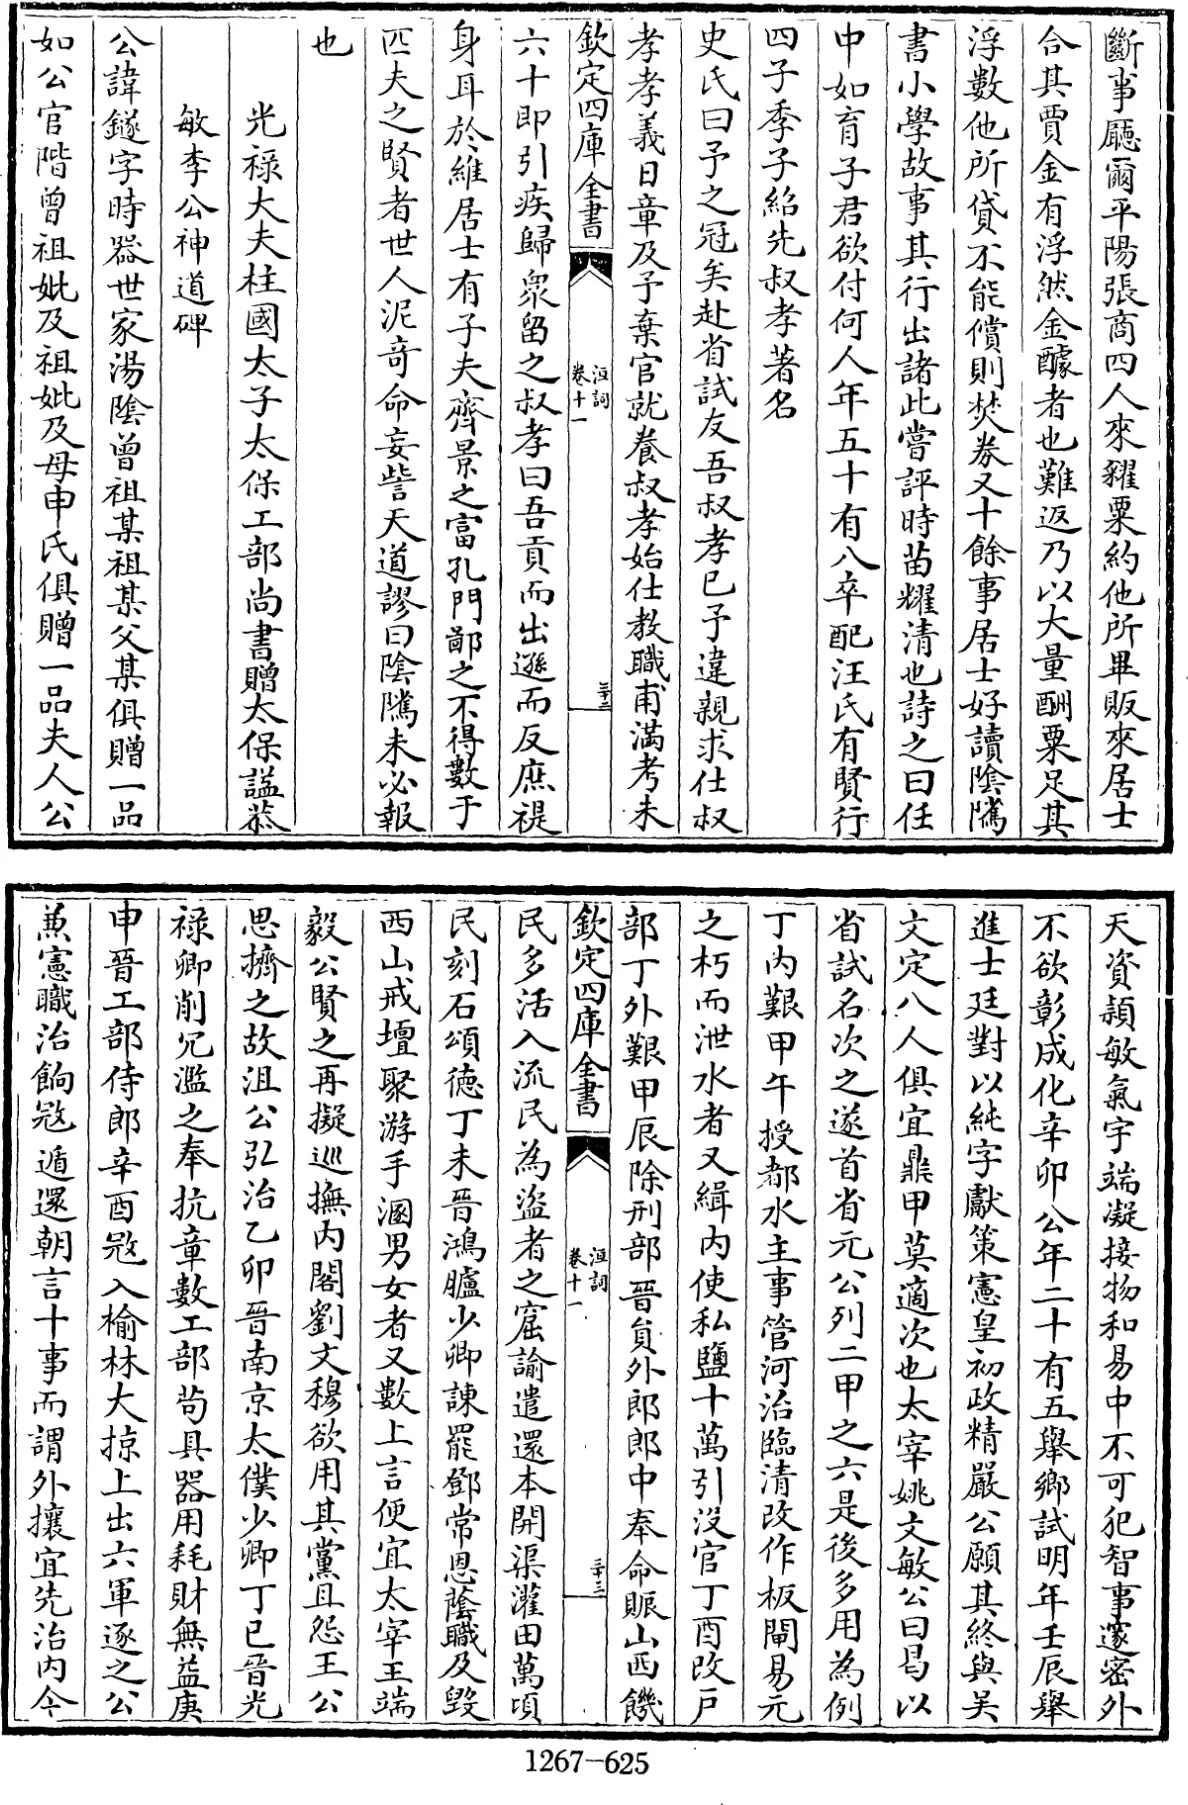 斷事廳爾平陽張商四人來糴粟約他所畢販來居士
合其賈金有浮然金醵者也難返乃以大量酬粟足其
浮數他所貸不能償則焚券又十餘事居士好讀陰騭
書小學故事其行出諸此嘗評時苗耀清也詩之曰任
中如育子君欲付何人年五十有八卒配汪氏有賢行
四子季子紹先叔孝著名
史氏曰予之冠矣赴省試友吾叔孝已予違親求仕叔
孝孝義日章及予棄官就養叔孝始仕教職甫滿考未
欽定四庫全書
洹詞
卷十一
三十二
六十即引疾歸眾留之叔孝曰吾貢而出遜而反庶禔
身耳於維居士有子夫齊景之富孔門鄙之不得數于
匹夫之賢者世人泥竒命妄訾天道謬曰陰騭未必報
也
光祿大夫柱國太子太保工部尚書贈太保諡恭
敏李公神道碑
公諱鐩字時器世家湯陰曾祖某祖某父某俱贈一品
如公官階曾祖妣及祖妣及母申氏俱贈一品夫人公
天資頴敏氣宇端凝接物和易中不可犯智事邃密外
不欲彰成化辛卯公年二十有五舉鄉試明年壬辰舉
進士廷對以純字獻策憲皇初政精嚴公願其終與吴
文定八人俱宜鼎甲莫適次也太宰姚文敏公曰曷以
省試名次之遂首省元公列二甲之六是後多用為例
丁内艱甲午授都水主事管河治臨清改作板閘易元
之朽而泄水者又緝内使私鹽十萬引没官丁酉改户
部丁外艱甲辰除刑部晉員外郎郎中奉命賑山西饑
欽定四庫全書
洹詞
卷十一
三十三
民多活入流民為盜者之窟諭遣還本開渠灌田萬頃
民刻石頌德丁未晉鴻臚少卿諫罷鄧常恩蔭職及毀
西山戒壇聚游手溷男女者又數上言便宜太宰王端
毅公賢之再擬巡撫内閣劉文穆欲用其黨且怨王公
思擠之故沮公弘治乙卯晉南京太僕少卿丁巳晉光
祿卿削冗濫之奉抗章數工部茍具器用耗財無益庚
申晉工部侍郎辛酉冦入榆林大掠上出六軍逐之公
兼憲職治餉冦遁還朝言十事而謂外攘宜先治内今
1267-625